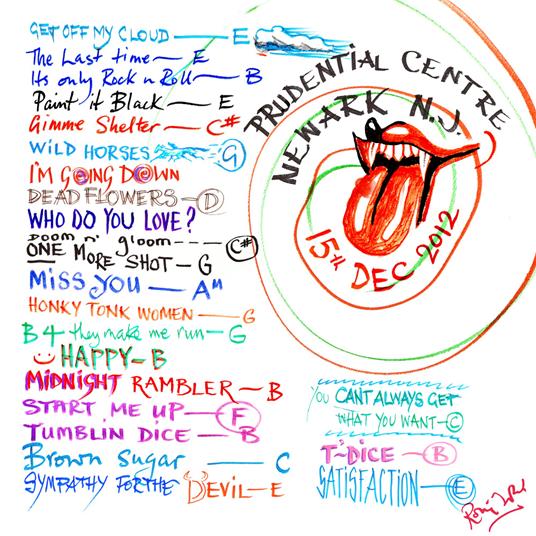 GET OFF MY CLOUD — E
The Last time — E
Its only Rock n Roll — B
Paint it Black — E
Gimme Shelter — C#
WILD HORSES G
I'M GOING DOWN
DEAD FLOWERS — D
WHO DO YOU LOVE?
DOOM n' gloom ---- C#
ONE MORE SHOT — G
MISS YOU — AM
HONKY TONK WOMEN — G
B4 they make me run — G
HAPPY — B
MIDNIGHT RAMBLER — B
START ME UP — F
TUMBLIN DICE — B
Brown Sugar — C
SYMPATHY FOR THE DEVIL — E
PRUDENTIAL CENTRE
NEWARK N.J.
15th DEC 2012
YOU CANT ALWAYS GET
WHAT YOU WANT — C
T~DICE — B
SATISFACTION — E